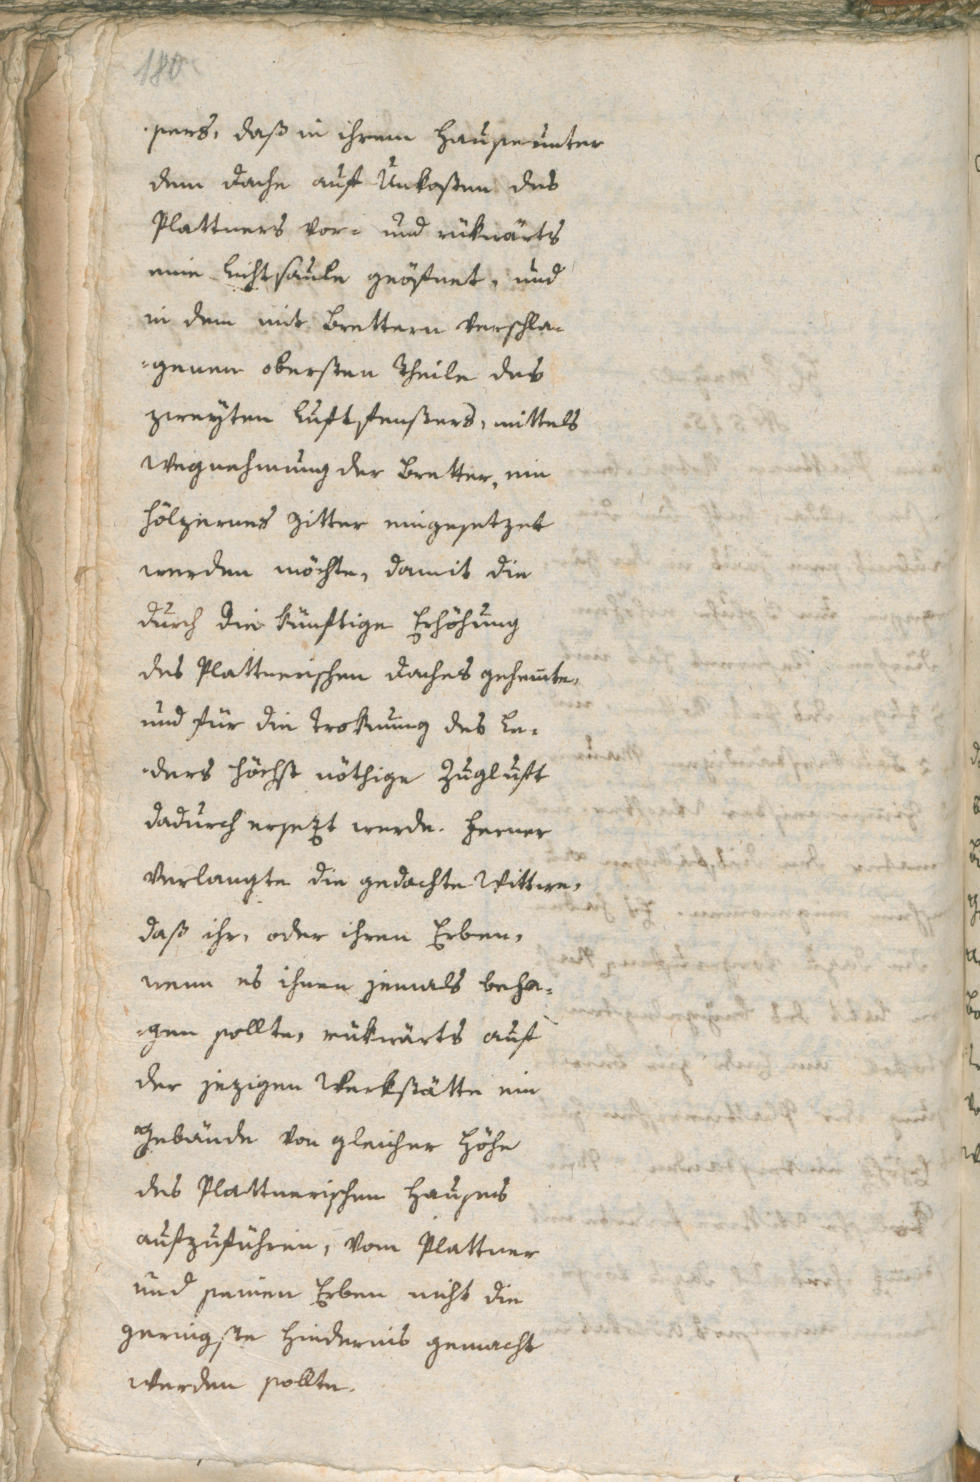 180
-sers, daß in ihrem Hause unter
dem Dache auf Unkosten des
Plattners vor- und rükwärts
eine Lichtsaule geöfnet, und
in dem mit Brettern verschla-
-genen obersten Theile des
zweyten Luftfensters, mittels
Wegnehmung der Bretter, ein
hölzernes Gitter eingesetzet
werden möchte, damit die
durch die künftige Erhöhung
des Plattnerischen Daches gehem̄te,
und für die Troknung des Le-
-ders höchst nöthige Zugluft
dadurch ersezt werde. Ferner
verlangte die gedachte Wittwe,
daß ihr, oder ihren Erben,
wenn es ihnen jemals beha-
-gen sollte, rükwärts auf
der jezigen Werkstätte ein
Gebäude von gleicher Höhe
des Plattnerischen Hauses
aufzuführen, vom Plattner
und seinen Erben nicht die
geringste Hindernis gemacht
werden sollte.